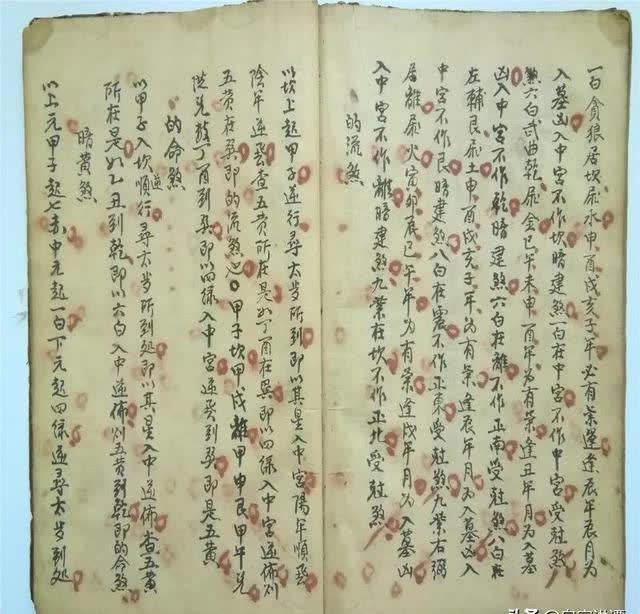 一白貪狼居坎屬水申酉戌亥子年必有榮運逢辰年辰月為
入墓凶入中宮不作坎暗建煞一白在中宮不作中宮受尅煞
煞六白武曲乾屬金巳午未申酉年为有榮逢丑年月为入墓
凶入中宮不作乾暗建煞六白在離不作正南受尅煞八白在
左輔艮屬土申酉戌亥子年为有榮逢辰年月为入墓凶入
中宮不作艮暗建煞八白在震不作正東受尅煞九紫右弼
居離屬火寅卯辰巳午年为有榮逢戌年月为入墓凶
入中宮不作離暗建煞九紫在坎不作正北受尅煞
的流煞
以坎上起甲子逆行尋太歲所到即以其星入中宮陽年順飛
陰年逆飛查五黃所在是如丁酉在巽即以四綠入中宮逆佈
五黃在煞即的流煞也〇甲子坎甲戌離甲申艮甲午兑
兑丁酉到巽即以四綠入中宮逆飛到巽即是五黃
的命煞
以甲子入坎順逆行尋太歲所到処即以其星入中逆佈查五黃
所在是如乙丑到乾即以六白入中逆佈五黃到乾即的命煞
暗黃煞
以上元甲子起七赤中元起一白下元起四綠逆尋太歲到処